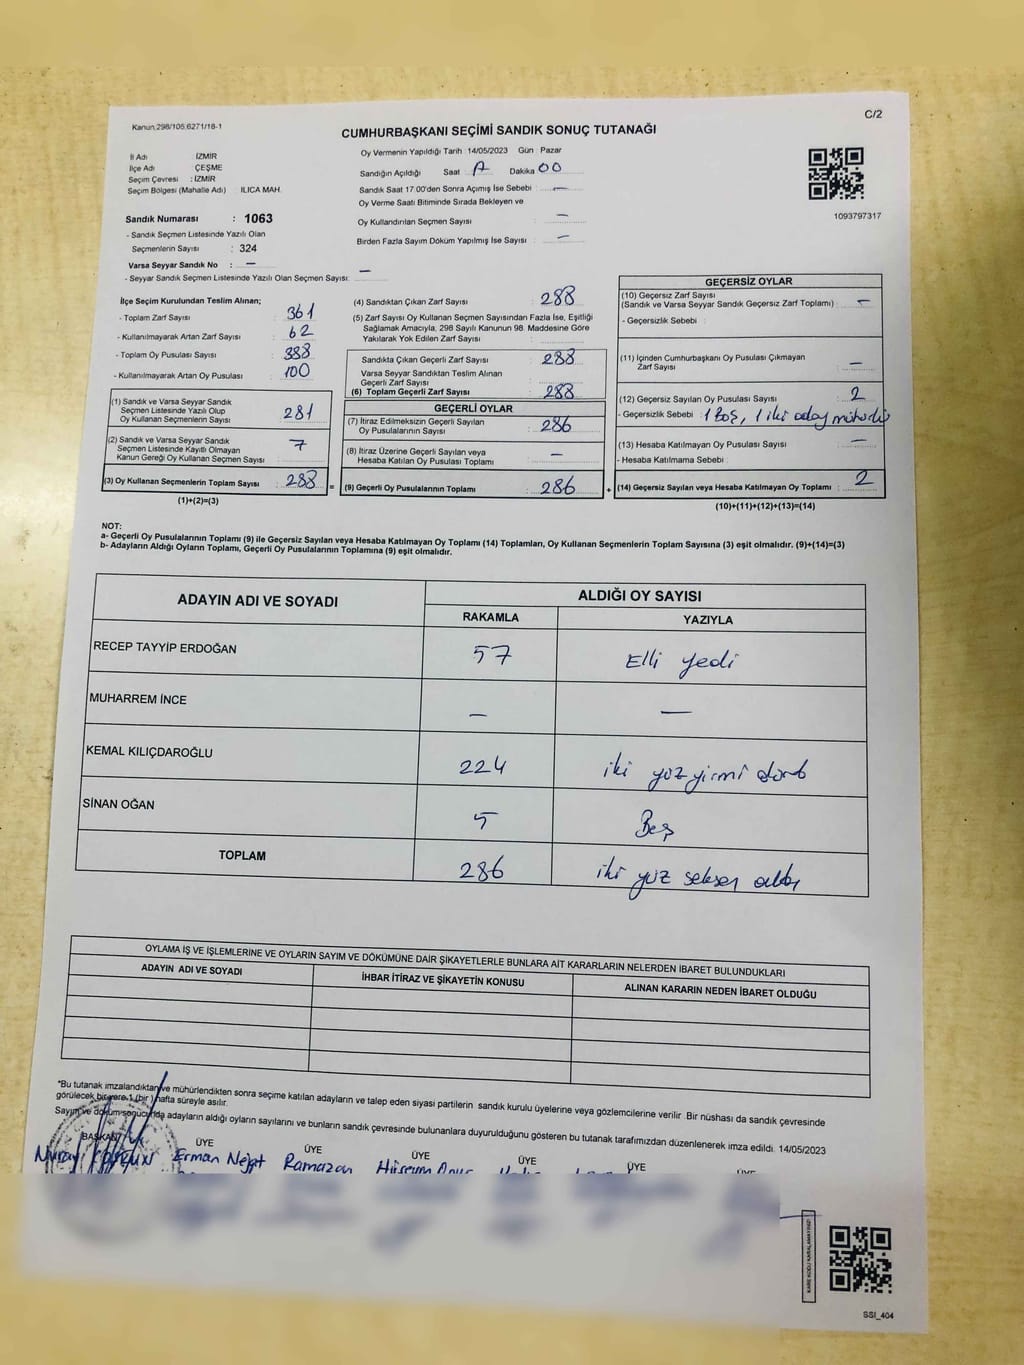 Kanun;298/105;6271/18-1
C/2
CUMHURBAŞKANI SEÇİMİ SANDIK SONUÇ TUTANAĞI
İl Adı : İZMİR
İlçe Adı : ÇEŞME
Seçim Çevresi : İZMİR
Seçim Bölgesi (Mahalle Adı) : ILICA MAH.
Sandık Numarası : 1063
- Sandık Seçmen Listesinde Yazılı Olan
Seçmenlerin Sayısı : 324
Varsa Seyyar Sandık No : —
- Seyyar Sandık Seçmen Listesinde Yazılı Olan Seçmen Sayısı: —
Oy Vermenin Yapıldığı Tarih : 14/05/2023 Gün : Pazar
Sandığın Açıldığı Saat Dakika 00
Sandık Saat 17.00'den Sonra Açımış İse Sebebi : —
Oy Verme Saati Bitiminde Sırada Bekleyen ve
Oy Kullandırılan Seçmen Sayısı : —
Birden Fazla Sayım Döküm Yapılmış İse Sayısı : —
1093797317
İlçe Seçim Kurulundan Teslim Alınan;
- Toplam Zarf Sayısı : 361
- Kullanılmayarak Artan Zarf Sayısı : 62
- Toplam Oy Pusulası Sayısı : 388
- Kullanılmayarak Artan Oy Pusulası : 100
(1) Sandık ve Varsa Seyyar Sandık
Seçmen Listesinde Yazılı Olup
Oy Kullanan Seçmenlerin Sayısı : 281
(2) Sandık ve Varsa Seyyar Sandık
Seçmen Listesinde Kayıtlı Olmayan
Kanun Gereği Oy Kullanan Seçmen Sayısı : 7
(3) Oy Kullanan Seçmenlerin Toplam Sayısı : 288
(1)+(2)=(3)
(4) Sandıktan Çıkan Zarf Sayısı : 288
(5) Zarf Sayısı Oy Kullanan Seçmen Sayısından Fazla İse, Eşitliği
Sağlamak Amacıyla, 298 Sayılı Kanunun 98. Maddesine Göre
Yakılarak Yok Edilen Zarf Sayısı :
Sandıkta Çıkan Geçerli Zarf Sayısı : 288
Varsa Seyyar Sandıktan Teslim Alınan
Geçerli Zarf Sayısı :
(6) Toplam Geçerli Zarf Sayısı : 288
GEÇERLİ OYLAR
(7) İtiraz Edilmeksizin Geçerli Sayılan
Oy Pusulalarının Sayısı : 286
(8) İtiraz Üzerine Geçerli Sayılan veya
Hesaba Katılan Oy Pusulası Toplamı : —
= (9) Geçerli Oy Pusulalarının Toplamı : 286
GEÇERSİZ OYLAR
(10) Geçersiz Zarf Sayısı
(Sandık ve Varsa Seyyar Sandık Geçersiz Zarf Toplamı) : —
- Geçersizlik Sebebi :
(11) İçinden Cumhurbaşkanı Oy Pusulası Çıkmayan
Zarf Sayısı : —
(12) Geçersiz Sayılan Oy Pusulası Sayısı : 2
- Geçersizlik Sebebi : 1 Boş, 1 iki aday mühürlü
(13) Hesaba Katılmayan Oy Pusulası Sayısı : —
- Hesaba Katılmama Sebebi :
+ (14) Geçersiz Sayılan veya Hesaba Katılmayan Oy Toplamı : 2
(10)+(11)+(12)+(13)=(14)
NOT:
a- Geçerli Oy Pusulalarının Toplamı (9) ile Geçersiz Sayılan veya Hesaba Katılmayan Oy Toplamı (14) Toplamları, Oy Kullanan Seçmenlerin Toplam Sayısına (3) eşit olmalıdır. (9)+(14)=(3)
b- Adayların Aldığı Oyların Toplamı, Geçerli Oy Pusulalarının Toplamına (9) eşit olmalıdır.
ADAYIN ADI VE SOYADI ALDIĞI OY SAYISI
RAKAMLA YAZIYLA
RECEP TAYYİP ERDOĞAN 57 Elli yedi
MUHARREM İNCE — —
KEMAL KILIÇDAROĞLU 224 iki yüz yirmi dört
SİNAN OĞAN 5 Beş
TOPLAM 286 iki yüz seksen altı
OYLAMA İŞ VE İŞLEMLERİNE VE OYLARIN SAYIM VE DÖKÜMÜNE DAİR ŞİKAYETLERLE BUNLARA AİT KARARLARIN NELERDEN İBARET BULUNDUKLARI
ADAYIN ADI VE SOYADI İHBAR İTİRAZ VE ŞİKAYETİN KONUSU ALINAN KARARIN NEDEN İBARET OLDUĞU
*Bu tutanak imzalandıktan ve mühürlendikten sonra seçime katılan adayların ve talep eden siyasi partilerin sandık kurulu üyelerine veya gözlemcilerine verilir. Bir nüshası da sandık çevresinde
görülecek bir yere 1 (bir) hafta süreyle asılır.
Sayım ve döküm sonucunda adayların aldığı oyların sayılarını ve bunların sandık çevresinde bulunanlara duyurulduğunu gösteren bu tutanak tarafımızdan düzenlenerek imza edildi. 14/05/2023
BAŞKAN ÜYE ÜYE ÜYE ÜYE ÜYE ÜYE
Erman Nejat Ramazan
KARE KODU KARALAMAYINIZ!
SSI_404